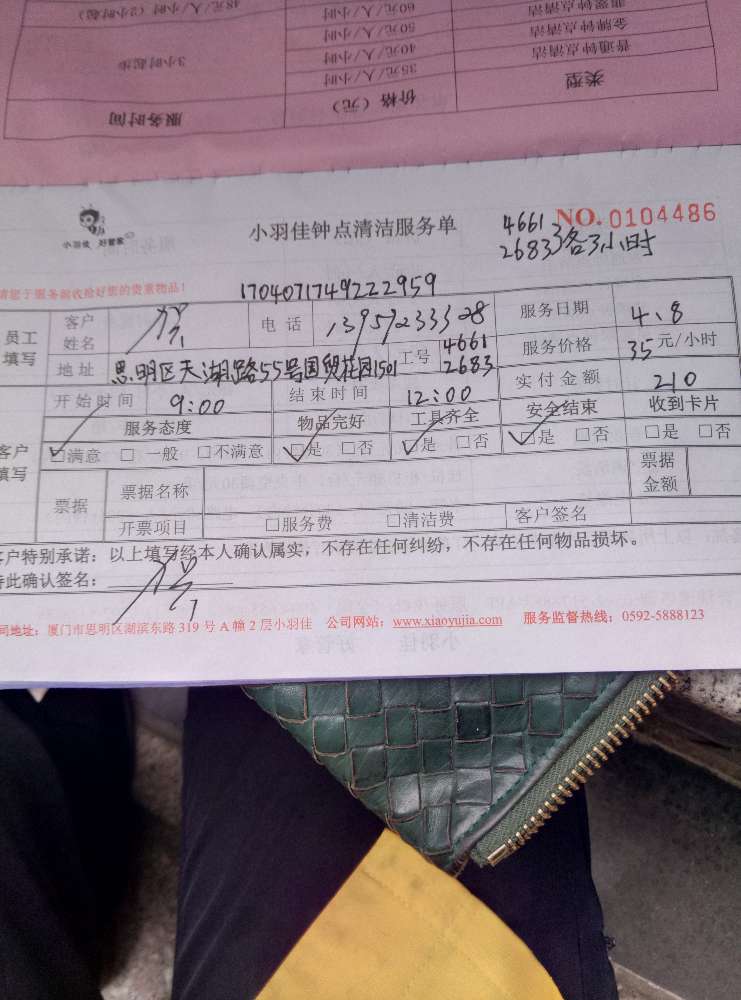 48元/人/小时（2小时）
60元/人/小时
翡翠钟点清洁
50元/人/小时
金牌钟点清洁
3小时起步
40元/人/小时
普通钟点清洁
35元/人/小时
服务时间
价格（元）
类型
小羽佳 好管家
小羽佳钟点清洁服务单
NO. 0104486
4661
2683 各3小时
请您于服务前收拾好您的贵重物品！
1704071749222959
员工填写 客户姓名 电话 13959233328 服务日期 4.8
地址 思明区天湖路55号国贸花园1501 工号 4661 2683 服务价格 35元/小时
开始时间 9:00 结束时间 12:00 实付金额 210
客户填写 服务态度 物品完好 工具齐全 安全结束 收到卡片
☑满意 □一般 □不满意 ☑是 □否 ☑是 □否 ☑是 □否 □是 □否
票据 票据名称 票据金额
开票项目 □服务费 □清洁费 客户签名
客户特别承诺：以上填写经本人确认属实，不存在任何纠纷，不存在任何物品损坏。
特此确认签名：
司地址：厦门市思明区湖滨东路 319 号 A 幢 2 层小羽佳 公司网站：www.xiaoyujia.com 服务监督热线：0592-5888123